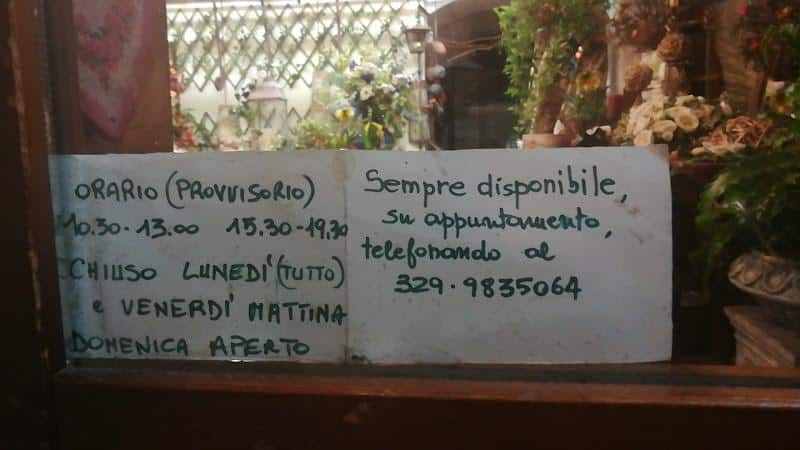 ORARIO (PROVVISORIO)
10.30-13.00 15.30-19.30
CHIUSO LUNEDI' (TUTTO)
e VENERDI' MATTINA
DOMENICA APERTO
Sempre disponibile,
su appuntamento,
telefonando al
329.9835064